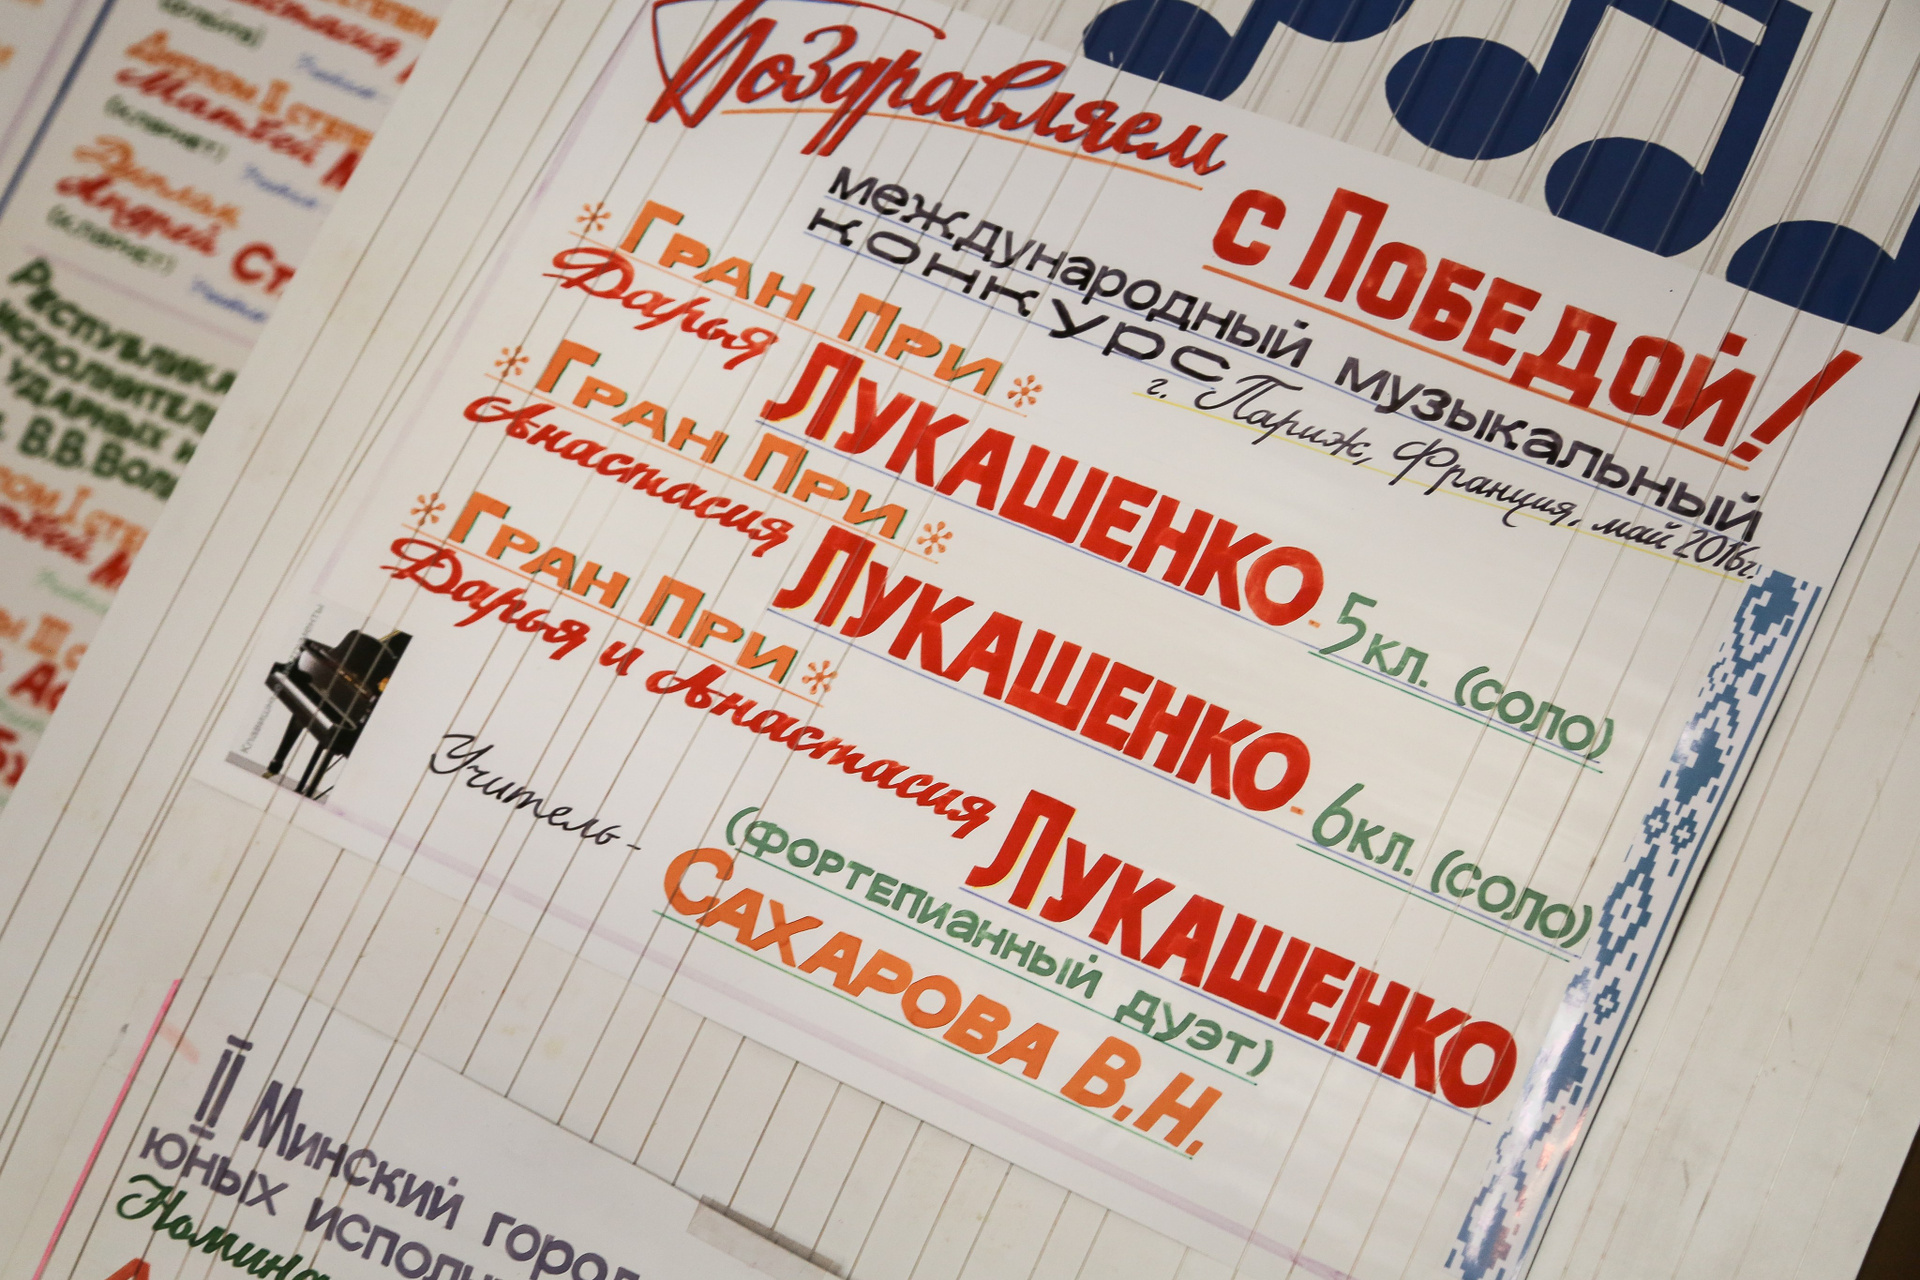 Поздравляем
с Победой!
международный музыкальный
конкурс г. Париж, Франция, май 2016г.
* Гран При *
Дарья Лукашенко - 5кл. (соло)
* Гран При *
Анастасия Лукашенко - 6кл. (соло)
* Гран При *
Дарья и Анастасия Лукашенко
(фортепианный дуэт)
Учитель - Сахарова В.Н.
II Минский город
юных исполн
Номина
Диплом II степе
Матвей М
(кларнет)
Диплом
Андрей Ст
(кларнет)
Республика
исполнител
ударных и
В.В.Вол